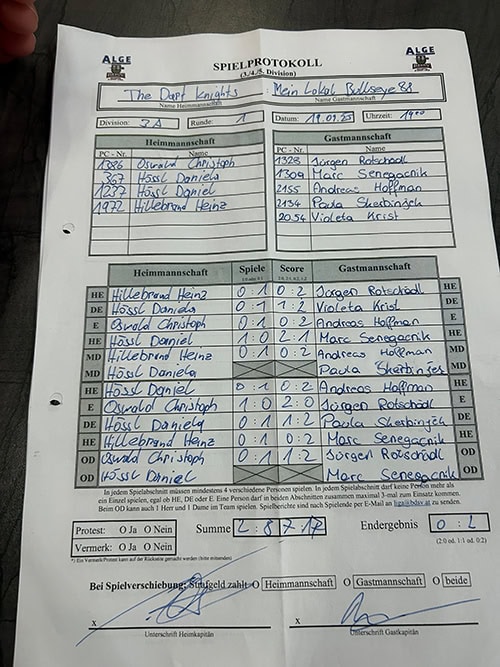 ALGE SPIELPROTOKOLL ALGE
(3./4./5. Division)
The Dart Knights : Mein Lokal Bullseye 88
Name Heimmannschaft Name Gastmannschaft
Division: 3A Runde: 1 Datum: 19.09.25 Uhrzeit: 19⁰⁰
Heimmannschaft Gastmannschaft
PC - Nr. Name PC - Nr. Name
1386 Oswald Christoph 1328 Jürgen Rotschädl
367 Hössl Daniela 1309 Marc Senegacnik
1237 Hössl Daniel 2155 Andreas Hoffman
1972 Hillebrand Heinz 2134 Paula Skerbinjek
2054 Violeta Krist
Heimmannschaft Spiele Score Gastmannschaft
HE Hillebrand Heinz 0:1 0:2 Jürgen Rotschädl HE
DE Hössl Daniela 0:1 1:2 Violeta Krist DE
E Oswald Christoph 0:1 0:2 Andreas Hoffman E
HE Hössl Daniel 1:0 2:1 Marc Senegacnik HE
MD Hillebrand Heinz 0:1 0:2 Andreas Hoffman MD
MD Hössl Daniela Paula Skerbinjek MD
HE Hössl Daniel 0:1 0:2 Andreas Hoffman HE
E Oswald Christoph 1:0 2:0 Jürgen Rotschädl E
DE Hössl Daniela 0:1 1:2 Paula Skerbinjek DE
HE Hillebrand Heinz 0:1 0:2 Marc Senegacnik HE
OD Oswald Christoph 0:1 1:2 Jürgen Rotschädl OD
OD Hössl Daniel Marc Senegacnik OD
In jedem Spielabschnitt müssen mindestens 4 verschiedene Personen spielen. In jedem Spielabschnitt darf keine Person mehr als
ein Einzel spielen, egal ob HE, DE oder E. Eine Person darf in beiden Abschnitten zusammen maximal 3-mal zum Einsatz kommen.
Beim OD kann auch 1 Herr und 1 Dame im Team spielen. Spielberichte sind nach Spielende per E-Mail an liga@bdsv.at zu senden.
Protest: O Ja O Nein Summe 2:8 7:17 Endergebnis 0:2
Vermerk: O Ja O Nein (2:0 od. 1:1 od. 0:2)
*) Ein Vermerk/Protest kann auf der Rückseite gemacht werden (bitte mitsenden)
Bei Spielverschiebung: Strafgeld zahlt O Heimmannschaft O Gastmannschaft O beide
x x
Unterschrift Heimkapitän Unterschrift Gastkapitän